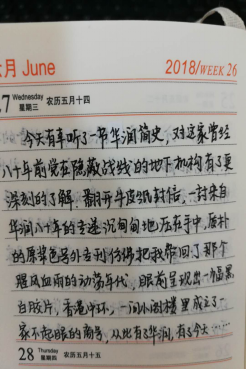 六月 June 2018/WEEK 26
27 Wednesday 星期三 农历五月十四
今天有幸听了一节华润简史，对这家曾经
八十年前党在隐蔽战线的地下机构有了更
深刻的了解。翻开牛皮纸封信，一封来自
华润八十年的专递沉甸甸地压在手中，质朴
的屏桨色号外专刊仿佛把我带回了那个
腥风血雨的动荡年代，眼前呈现出一幅黑
白胶片，香港中环，一间小阁楼里成立了一
家不起眼的商号，从此有了华润，有了今天……
28 Thursday 星期四 农历五月十五